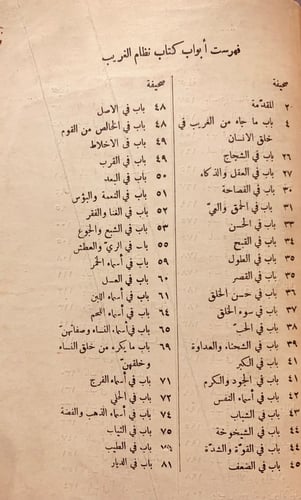 فهرست أبواب كتاب نظام الغريب
صحيفة
٢٠ للمقدّمة
٤ باب ما جاء من الغريب في
خلق الانسان
٢٦ باب في الشجاج
٢٧ باب في العقل والذكاء
٣٠ باب في الفصاحة
٣١ باب في الحمق والعيّ
٣٣ باب في الحسن
٣٤ باب في القبح
٣٤ باب في الطول
٣٥ باب في القصر
٣٦ باب في حسن الخلق
٣٧ باب في سوء الخلق
٣٨ باب في الحبّ
٣٩ باب في الشحناء والعداوة
٤١ باب في الكبر
٤١ باب في الجود والكرم
٤٢ باب في أسماء النفس
٤٣ باب في الشباب
٤٤ باب في الشيخوخة
٤٤ باب في القوّة والشدّة
٤٥ باب في الضعف
صحيفة
٤٨ باب في الاصل
٤٨ باب في الخالص من القوم
٤٩ باب فى الاخلاط
٤٩ باب في القرب
٥٠ باب في البعد
٥١ باب في النعمة والبؤس
٥٢ باب في الغنا والفقر
٥٣ باب في الشبع والجوع
٥٥ باب في الريّ والعطش
٥٩ باب في أسماء الخمر
٦٠ باب في العسل
٦١ باب في أسماء اللبن
٦٤ باب في أسماء اللحم
٦٥ باب في أسماء النساء وصفاتهنّ
٦٩ باب ما يكره من خلق النساء
وخلقهنّ
٧١ باب في أسماء الفرج
٧٢ باب في الحلي
٧٤ باب في أسماء الذهب والفضة
٧٥ باب في الثياب
باب في الطيب
٨١ باب في الديار